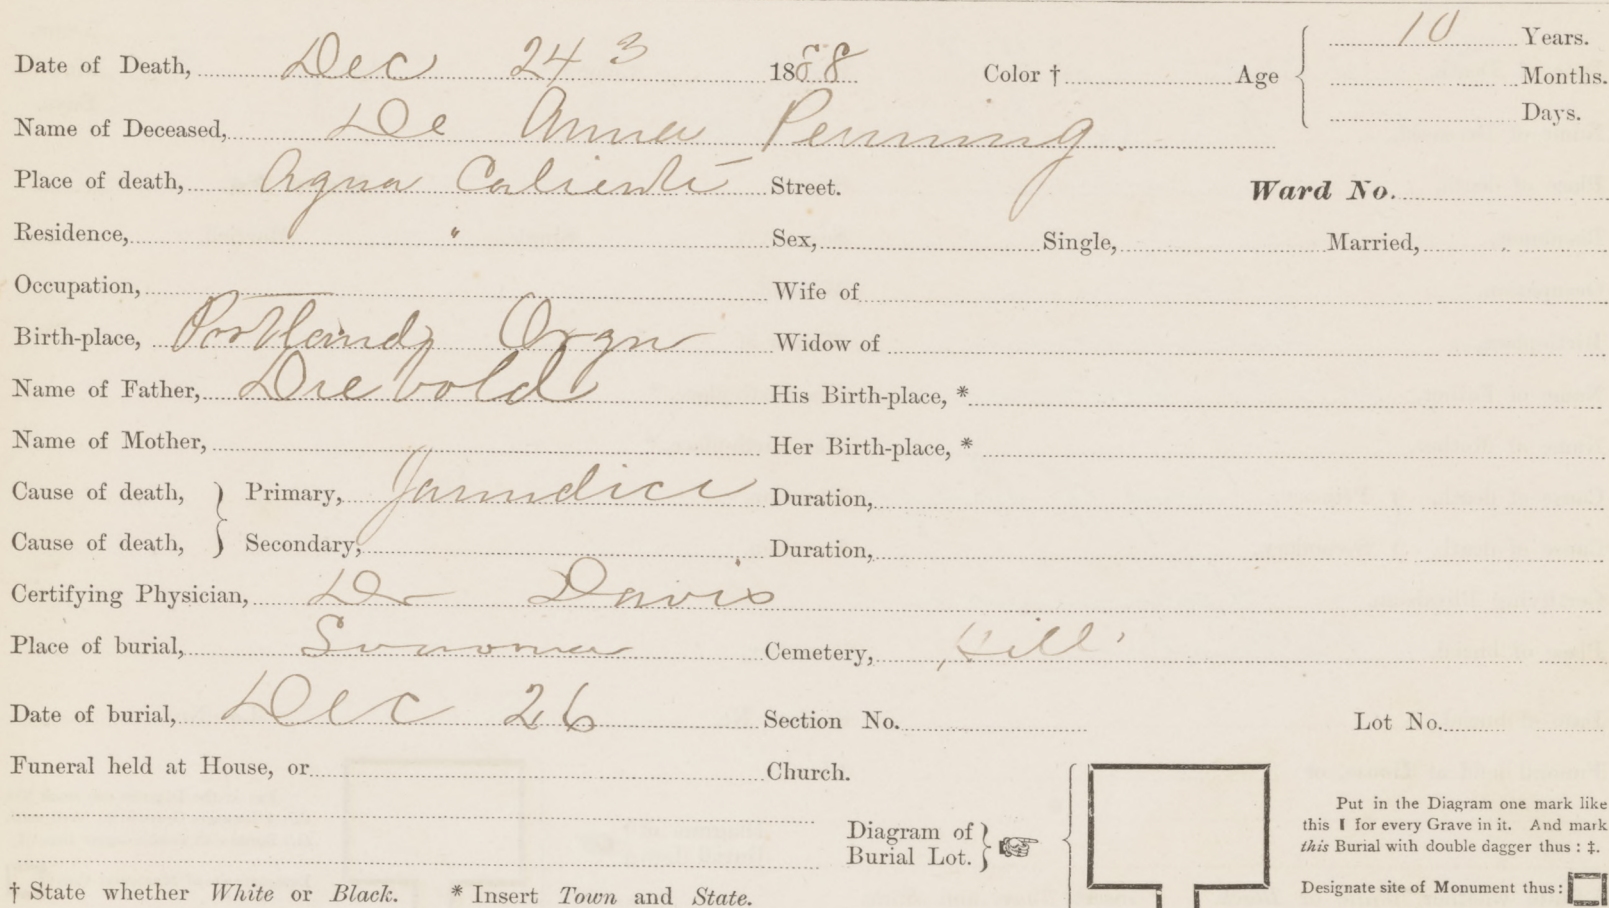 Date of Death, Dec 24 3 1888 Color † Age 10 Years.
Months.
Days.
Name of Deceased, De Anna Penning.
Place of death, Agua Calienté Street. Ward No.
Residence, " Sex, Single, Married,
Occupation, Wife of
Birth-place, Portland Orgn Widow of
Name of Father, Diebold His Birth-place, *
Name of Mother, Her Birth-place, *
Cause of death, } Primary, Jaundice Duration,
Cause of death, } Secondary, Duration,
Certifying Physician, Dr Davis
Place of burial, Sonoma Cemetery, Hill
Date of burial, Dec 26 Section No. Lot No.
Funeral held at House, or Church.
Diagram of
Burial Lot. }
Put in the Diagram one mark like
this I for every Grave in it. And mark
this Burial with double dagger thus : ‡.
Designate site of Monument thus:
† State whether White or Black. * Insert Town and State.